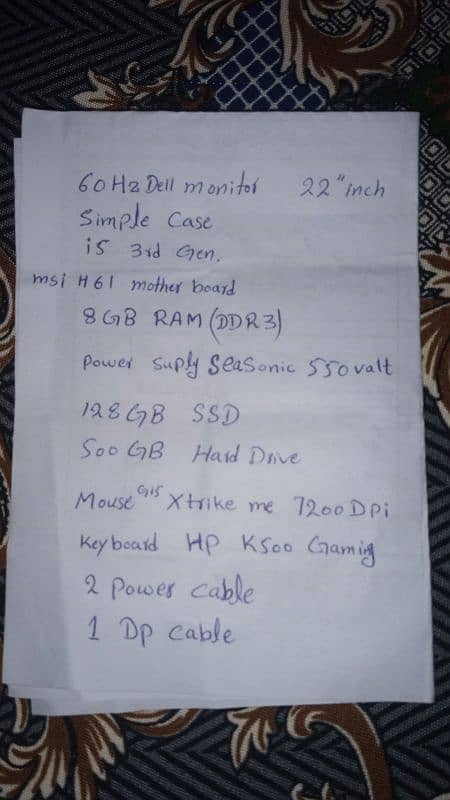 60Hz Dell monitor 22"inch
Simple Case
i5 3rd Gen.
msi H61 mother board
8GB RAM (DDR3)
Power Suply SeaSonic 550valt
128GB SSD
500 GB Hard Drive
Mouse G15 Xtrike me 7200Dpi
Keyboard HP K500 Gaming
2 Power cable
1 Dp cable